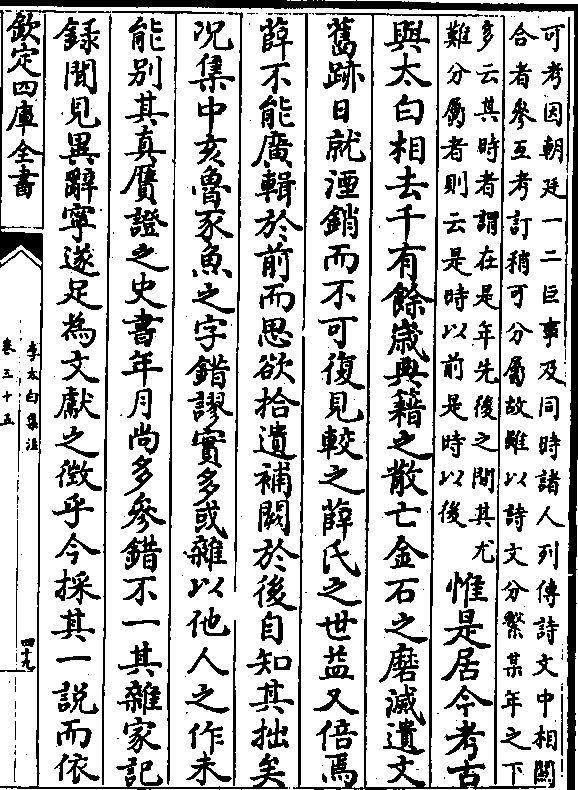 可考因朝廷一二巨事及同時諸人列傳詩文中相關
合者參互考訂稍可分屬故雖以詩文分繫某年之下
多云其時者謂在是年先後之間其尤
難分屬者則云是時以前是時以後
惟是居今考古
與太白相去千有餘歲典籍之散亡金石之磨滅遺文
舊跡日就湮銷而不可復見較之薛氏之世益又倍焉
薛不能廣輯於前而思欲拾遺補闕於後自知其拙矣
況集中亥魯豕魚之字錯謬實多或雜以他人之作未
能別其真贋證之史書年月尚多參錯不一其雜家記
録聞見異辭寧遂足為文獻之徵乎今採其一說而依
欽定四庫全書
李太白集注
卷三十五
四十九